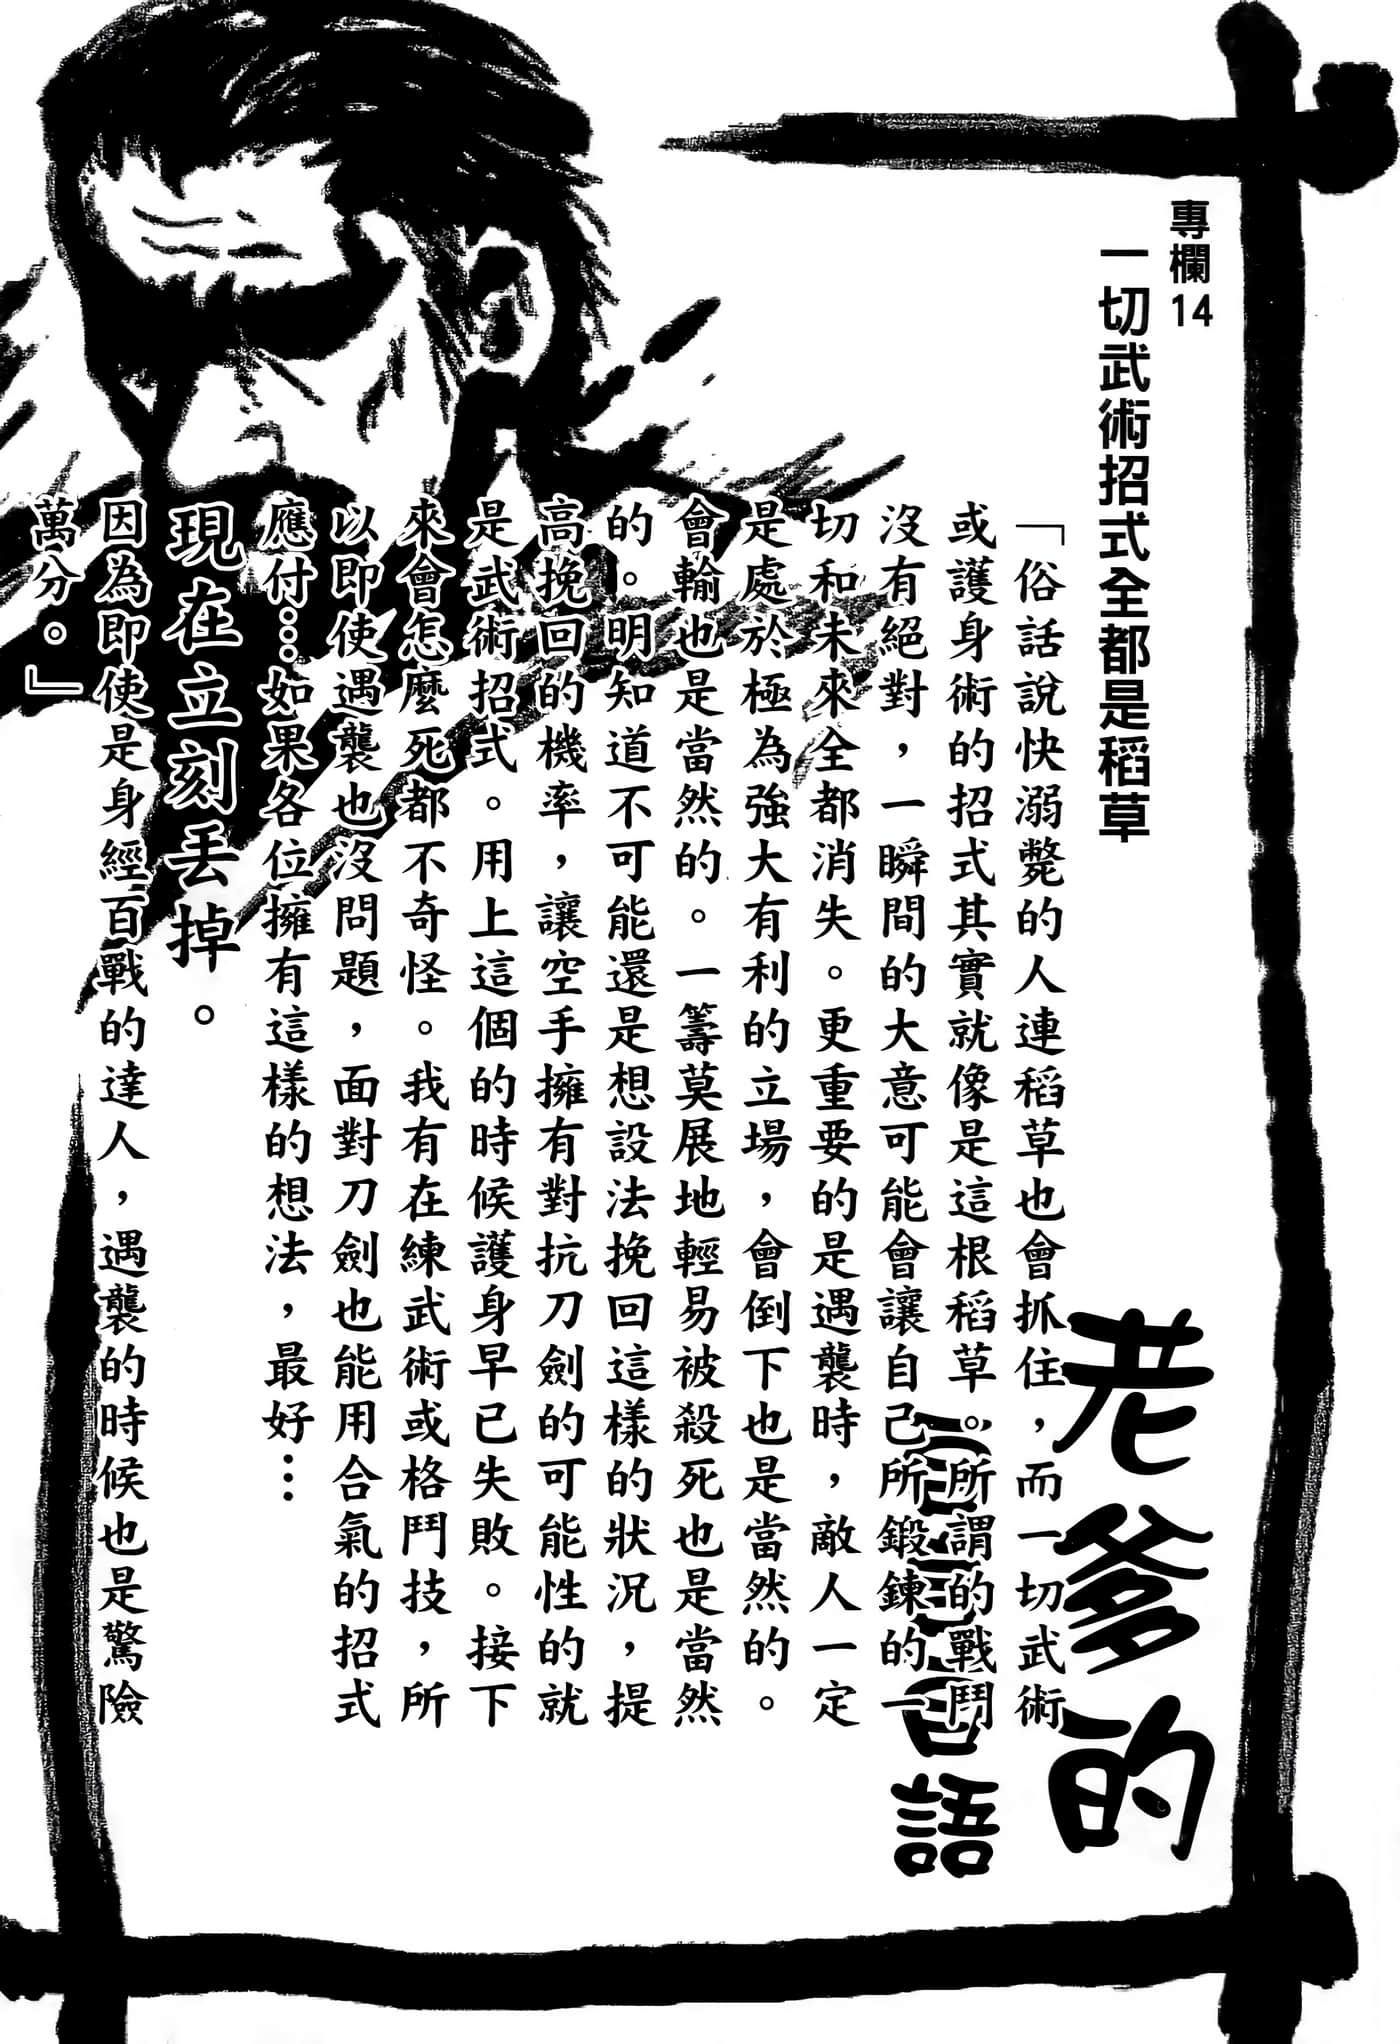 專欄14
一切武術招式全都是稻草
老爹的
語
「俗話說快溺斃的人連稻草也會抓住，而一切武術
或護身術的招式其實就像是這根稻草。所謂的戰鬥
沒有絕對，一瞬間的大意可能會讓自己所鍛鍊的一
切和未來全都消失。更重要的是遇襲時，敵人一定
是處於極為強大有利的立場，會倒下也是當然的。
會輸也是當然的。一籌莫展地輕易被殺死也是當然
的。明知道不可能還是想設法挽回這樣的狀況，提
高挽回的機率，讓空手擁有對抗刀劍的可能性的就
是武術招式。用上這個的時候護身早已失敗。接下
來會怎麼死都不奇怪。我有在練武術或格鬥技，所
以即使遇襲也沒問題，面對刀劍也能用合氣的招式
應付…如果各位擁有這樣的想法，最好…
現在立刻丟掉。
因為即使是身經百戰的達人，遇襲的時候也是驚險
萬分。』